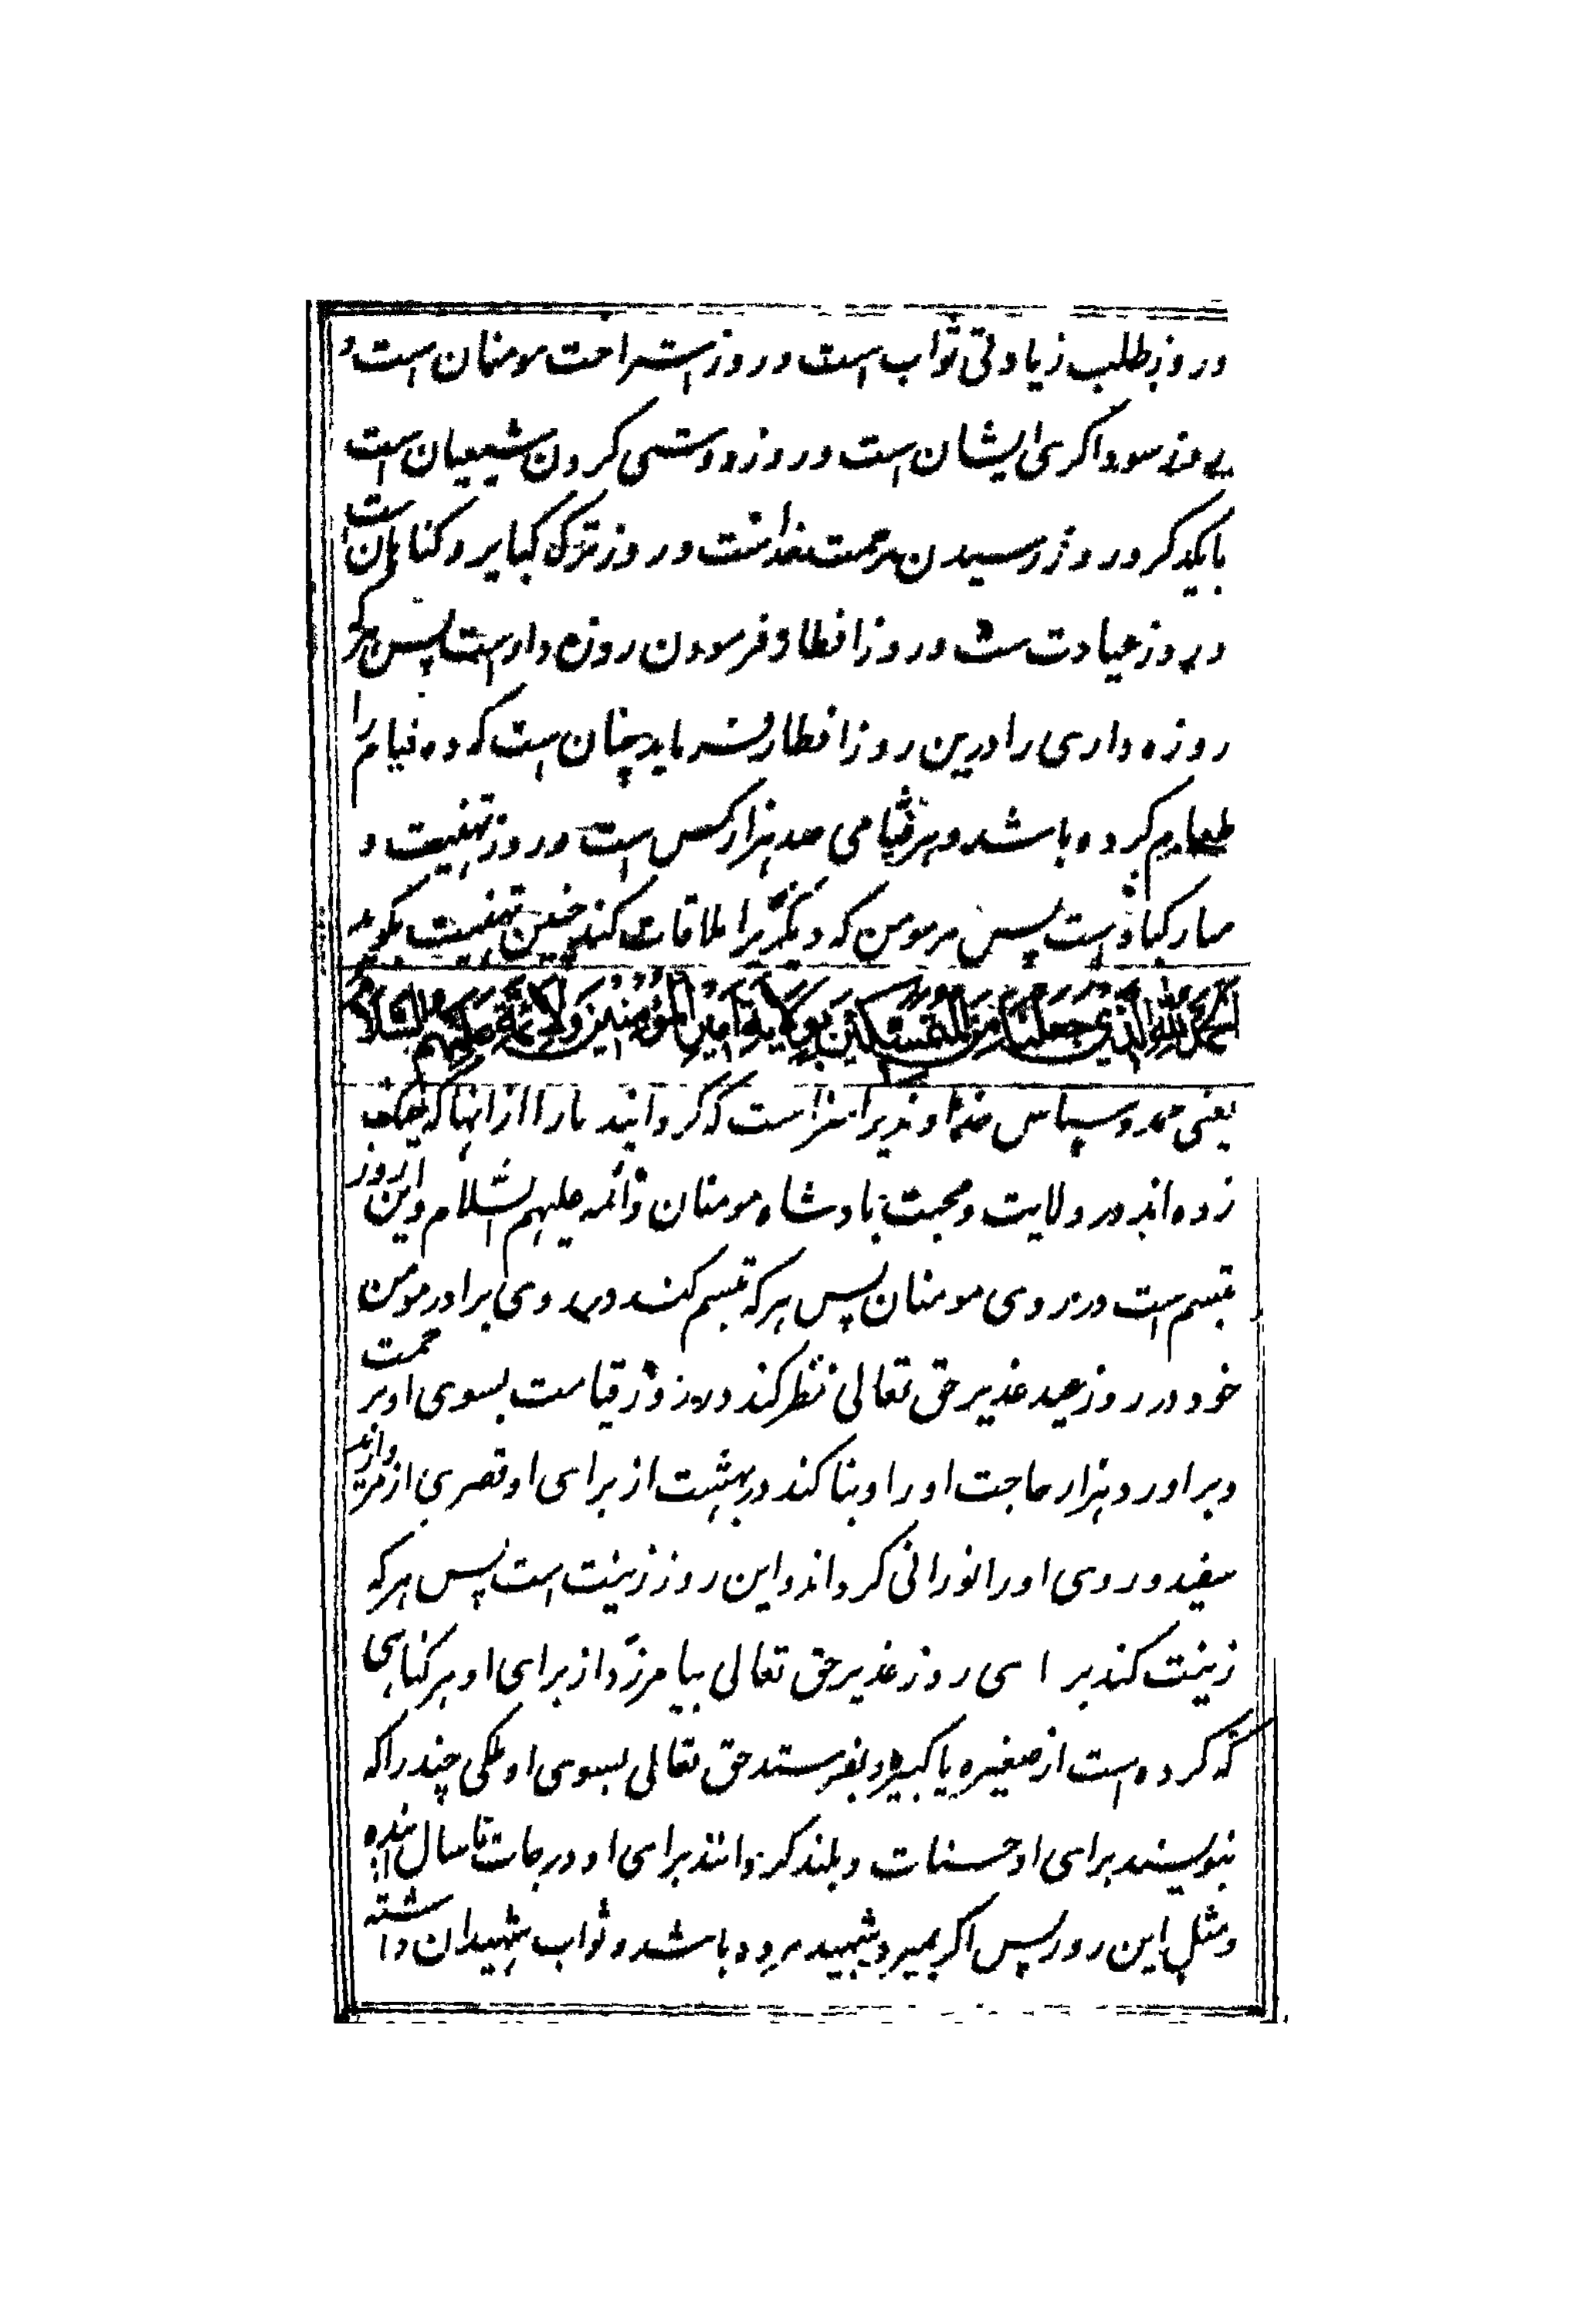 و روز طلب زیادتی ثواب است و روز استراحت مومنان است و
روز سوداکری ایشان است و روز دوستی کردن شیعیان است
بایکدکر و روز رسیدن برحمت خداست و روز ترک کبایر و کناهان است
و روز عبادت است و روز افطار فرمودن روزه دارست پس هر که
روزه داری را درین روز افطار فرماید چنان است که ده فیام را
طعام کرده باشد و هر فیامی صد هزار کس است و روز تهنیت و
مبارکباد است پس هر مومن که دیگریرا ملاقات کند چنین تهنیت بکوید
اَلْحَمْدُ لِلّٰهِ الَّذِی جَعَلَنَا مِنَ الْمُتَمَسِّکِینَ بِوِلَایَةِ اَمِیرِ الْمُؤْمِنِینَ وَالْاَئِمَّةِ عَلَیْهِمُ السَّلَامُ
یعنی حمد و سپاس خداوندیرا سزاست که کردانید مارا از انها که چنک
زده اند در ولایت و محبت بادشاه مومنان و ائمه علیهم السّلام و این روز
تبسم است در روی مومنان پس هر که تبسم کند در روی برادر مومن
خود در روز عید غدیر حق تعالی نظر کند در روز قیامت بسوی او برحمت
و براورد هزار حاجت اورا و بنا کند در بهشت از برای او قصری از مروارید
سفید و روی اورا نورانی کرداند و این روز زینت است پس هر که
زینت کند برای روز غدیر حق تعالی بیامرزد از برای او هر کناهی
که کرده است از صغیره یا کبیره و بفرستد حق تعالی بسوی او ملکی چند را که
بنویسند برای او حسنات و بلند کردانند برای او درجات تا سال اینده
و مثل این روز پس اکر بمیرد شهید مرده باشد و ثواب شهیدان داشته